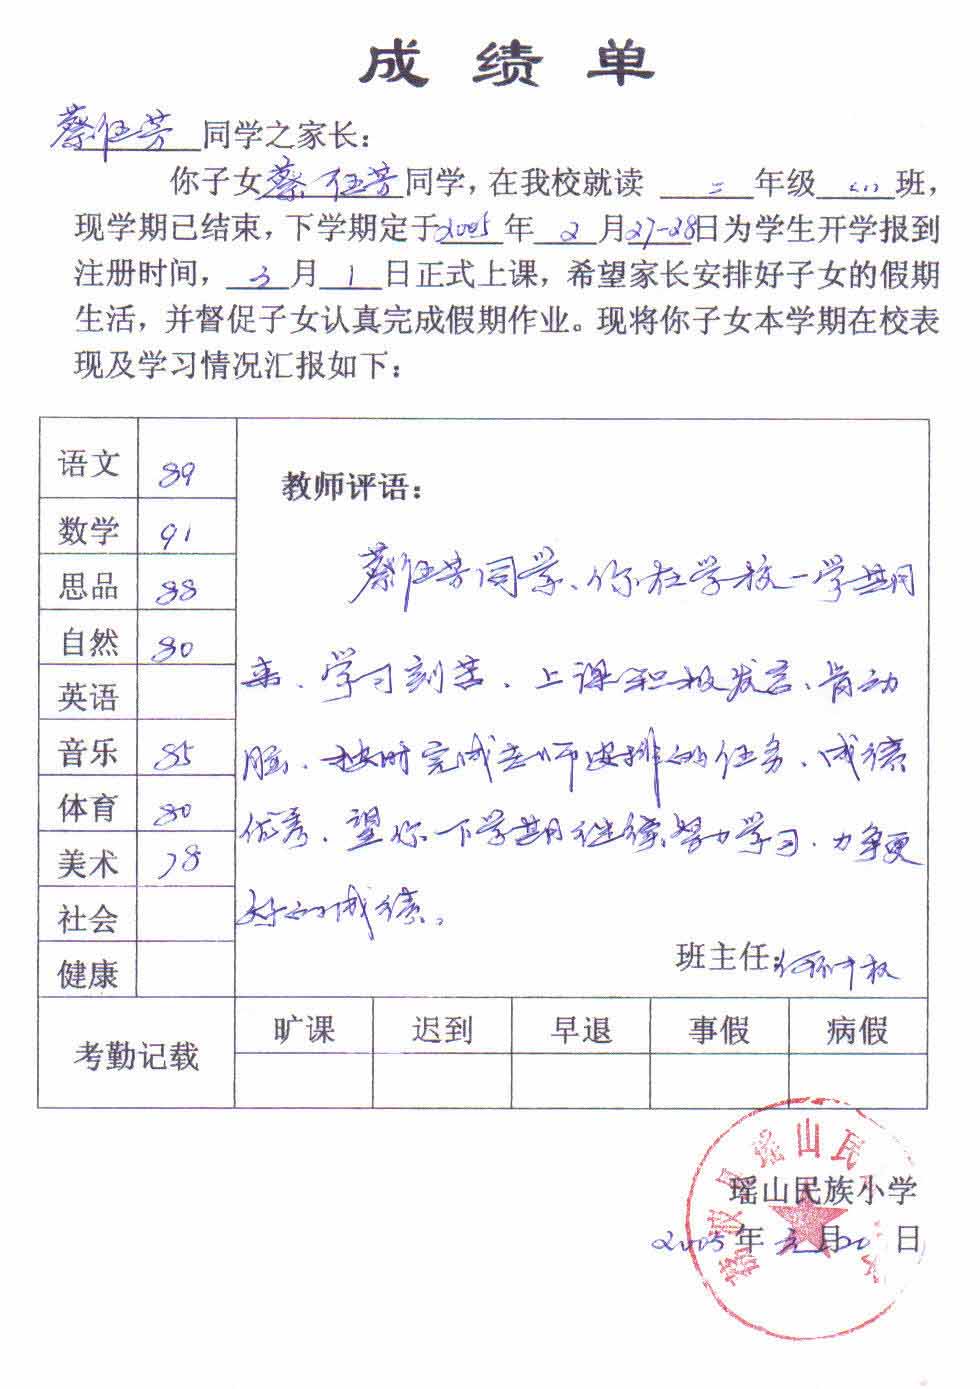 成绩单
蔡伍芳同学之家长：
你子女蔡伍芳同学，在我校就读 二 年级 (二) 班，
现学期已结束，下学期定于2005年 2 月27-28日为学生开学报到
注册时间， 3 月 1 日正式上课，希望家长安排好子女的假期
生活，并督促子女认真完成假期作业。现将你子女本学期在校表
现及学习情况汇报如下：
语文 89
数学 91
思品 88
自然 80
英语
音乐 85
体育 80
美术 78
社会
健康
教师评语：
蔡伍芳同学、你在学校一学期
来、学习刻苦、上课积极发言、肯动
脑、按时完成老师安排的任务、成绩
优秀、望你下学期继续努力学习、力争更
好的成绩。
班主任：
考勤记载 旷课 迟到 早退 事假 病假
瑶山民
瑶山民族小学
2005年 元 月20日